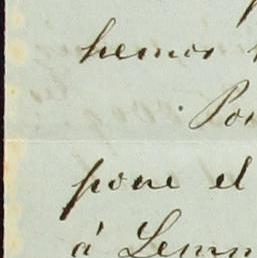 hemos
Po
pone el
á Lemm